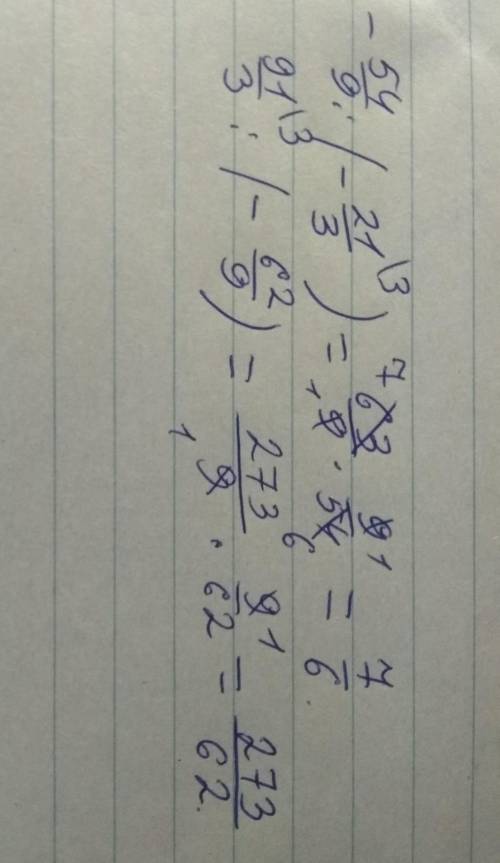 -54/9 : (-21\3/3) = 7 63/1 9 · 9 1/54 6 = 7/6.
91\3/3 : (-62/9) = 273/1 9 · 9 1/62 = 273/62.